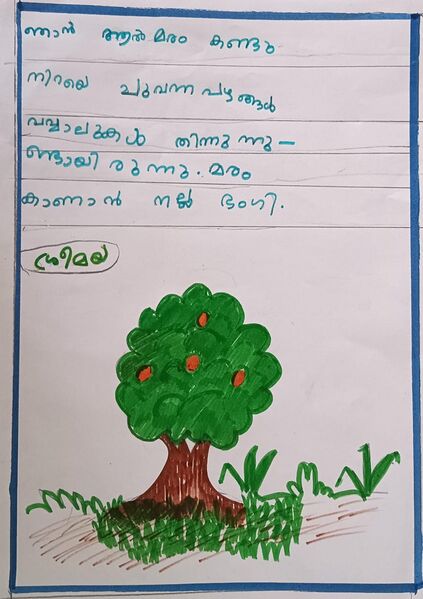 ഞാൻ ആൽമരം കണ്ടു
നിറയെ ചുവന്ന പഴങ്ങൾ
വവ്വാലുകൾ തിന്നുന്നു-
ണ്ടായിരുന്നു. മരം
കാണാൻ നല്ല ഭംഗി.
ശ്രീമയ